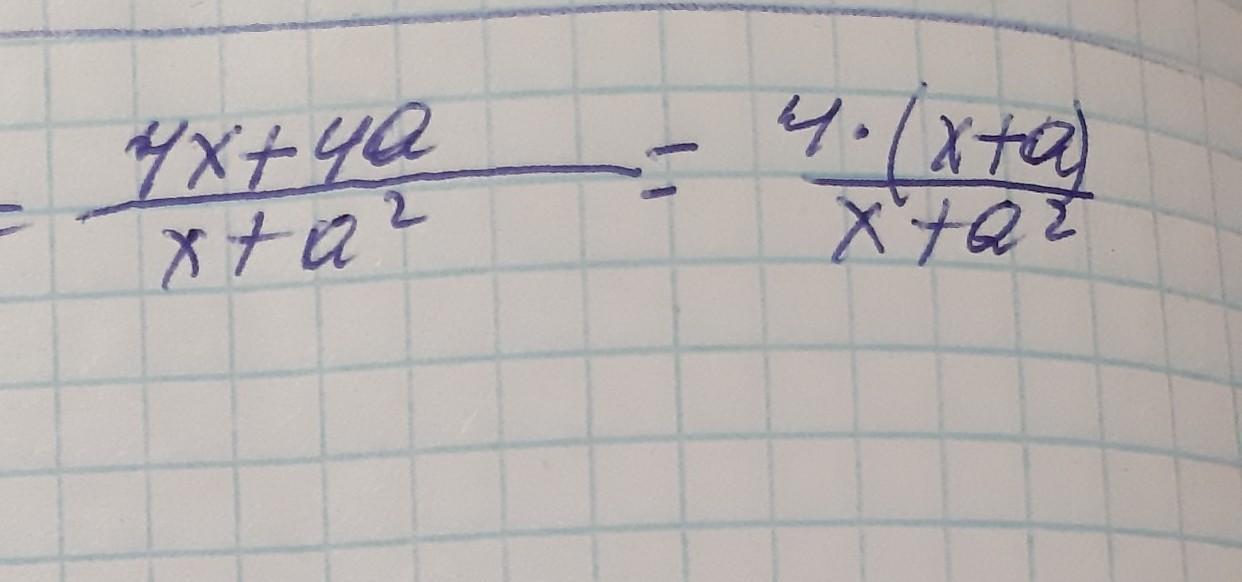 = \frac{4x+4a}{x+a^2} = \frac{4 \cdot (x+a)}{x+a^2}